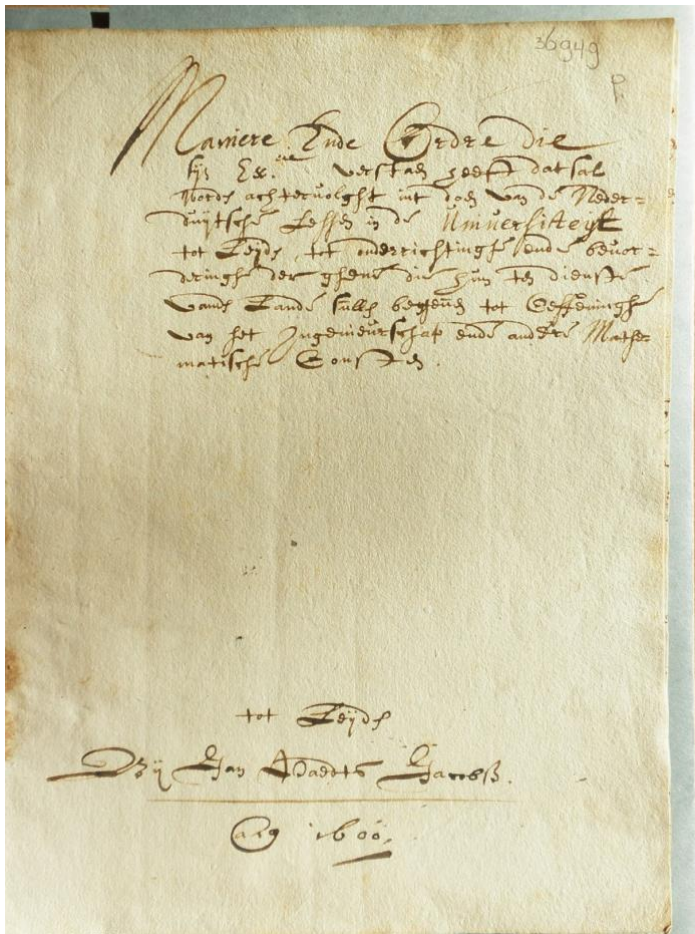 36949
P.
Maniere Ende Ordre die
sijn Ex.tie verstaen heeft dat sal
worden achtervolght int doen van de Neder=
duÿtsche Lessen in de Universiteyt
tot Leÿden tot onderrichtinghe ende bevor=
deringhe der ghene die hun ten dienste
vanden Lande sullen begeven tot Oeffeninghe
van het Ingenieurschap ende andere Mathe-
matische Consten.
tot Leÿden
Bÿ Jan Paedts Jacobsz.
1600.